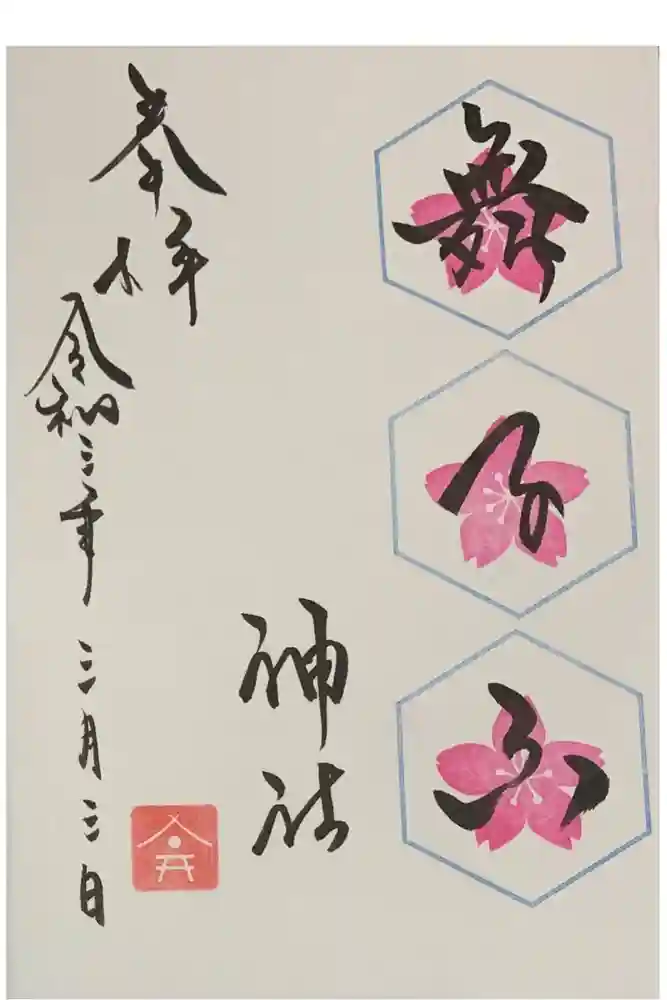 舞子六
神社
奉拝
令和三年三月三日